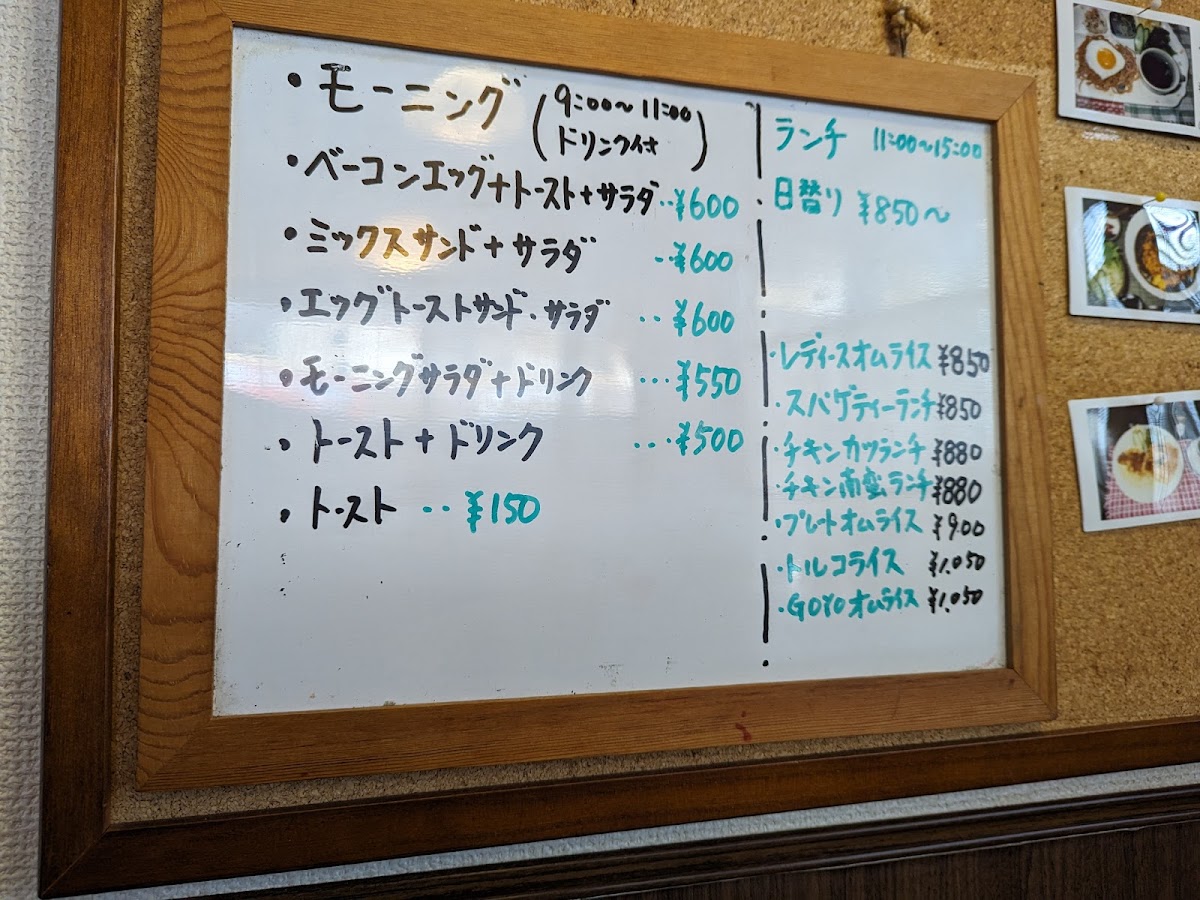 ・モーニング (9:00〜11:00
ドリンク付)
・ベーコンエッグ+トースト+サラダ‥¥600
・ミックスサンド+サラダ ‥¥600
・エッグトーストサンド・サラダ ‥¥600
・モーニングサラダ+ドリンク …¥550
・トースト+ドリンク …¥500
・トースト ‥¥150
ランチ 11:00〜15:00
日替り ¥850〜
・レディースオムライス ¥850
・スパゲティーランチ ¥850
・チキンカツランチ ¥880
・チキン南蛮ランチ ¥880
・プレートオムライス ¥900
・トルコライス ¥1.050
・GOYOオムライス ¥1.050